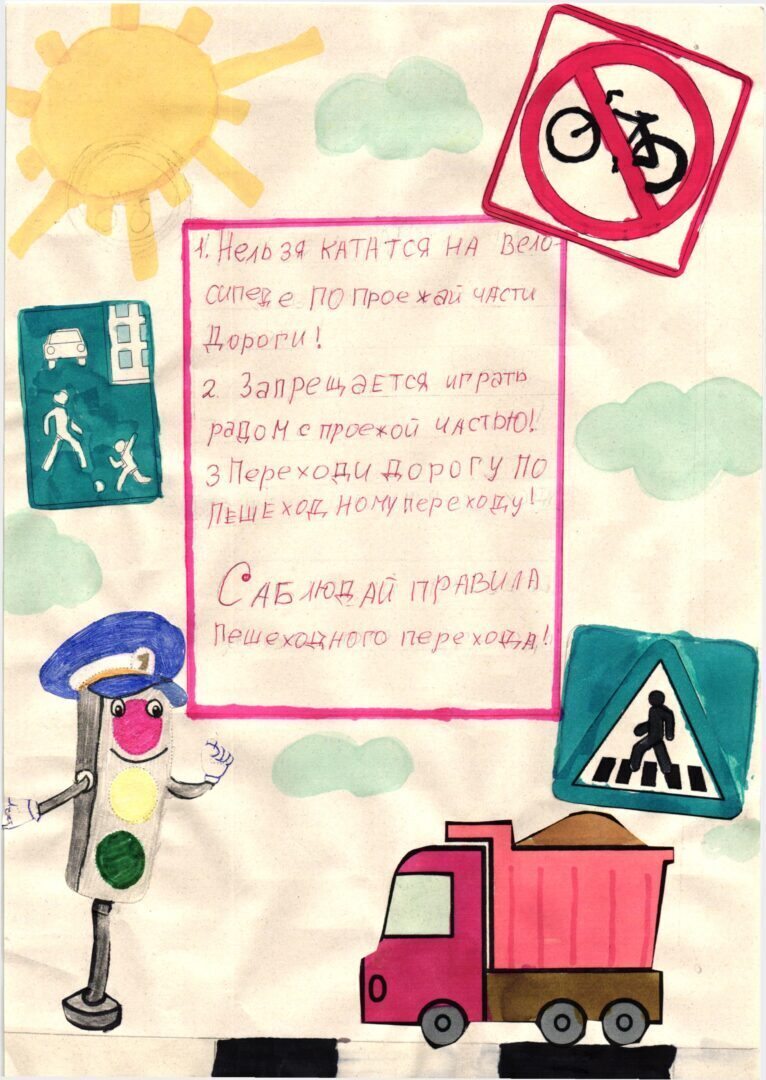 1. Нельзя кататся на вело-
сипеде по проежай части
Дороги!
2. Запрещается играть
радом с проежой частью!
3 Переходи дорогу по
пешеходному переходу!
Саблюдай правила
пешеходного перехода!